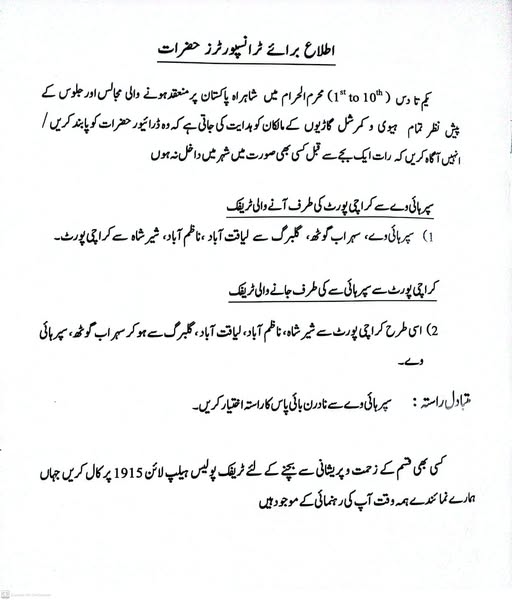 اطلاع برائے ٹرانسپورٹرز حضرات
یکم تا دس (1st to 10th) محرم الحرام میں شاہراہ پاکستان پر منعقد ہونے والی مجالس اور جلوس کے
پیش نظر تمام ہیوی و کمرشل گاڑیوں کے مالکان کو ہدایت کی جاتی ہے کہ وہ ڈرائیور حضرات کو پابند کریں /
انہیں آگاہ کریں کہ رات ایک بجے سے قبل کسی بھی صورت میں شہر میں داخل نہ ہوں
سپر ہائی وے سے کراچی پورٹ کی طرف آنے والی ٹریفک
1) سپر ہائی وے، سہراب گوٹھ، گلبرگ سے لیاقت آباد، ناظم آباد، شیر شاہ سے کراچی پورٹ۔
کراچی پورٹ سے سپر ہائی سے کی طرف جانے والی ٹریفک
2) اسی طرح کراچی پورٹ سے شیر شاہ، ناظم آباد، لیاقت آباد، گلبرگ سے ہو کر سہراب گوٹھ، سپر ہائی
وے۔
متبادل راستہ : سپر ہائی وے سے نادرن بائی پاس کا راستہ اختیار کریں۔
کسی بھی قسم کے زحمت و پریشانی سے بچنے کے لئے ٹریفک پولیس ہیلپ لائن 1915 پر کال کریں جہاں
ہمارے نمائندے ہمہ وقت آپ کی رہنمائی کے موجود ہیں